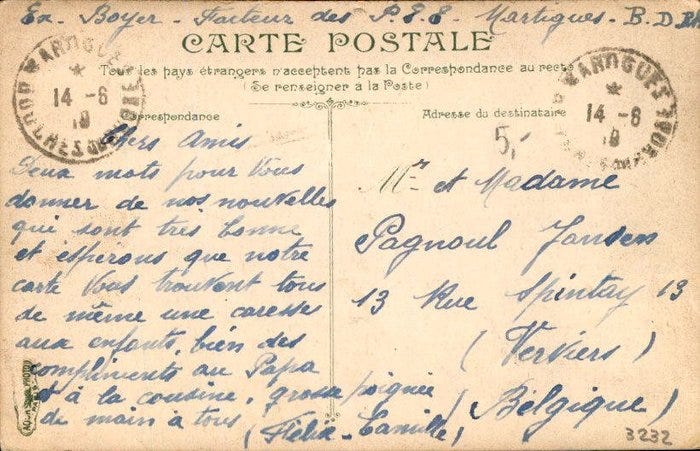 Ex. Boyer - Facteur des P.E.E. Martigues - B. D
CARTE POSTALE
Tous les pays étrangers n'acceptent pas la Correspondance au recto
(Se renseigner à la Poste)
Correspondance
Adresse du destinataire
14 - 6
14 - 6
5,-
Chers Amis
Deux mots pour Vous
donner de nos nouvelles
qui sont très bonne
et esperons que notre
carte Vous trouvent tous
de même une caresses
aux enfants, bien des
compliments au Papa
et à la cousine, grosse poignée
de main à tous (Félix - Camille)
Mr et Madame
Pagnoul Jansen
13 Rue Spintay 13
(Verviers)
(Belgique)
3232